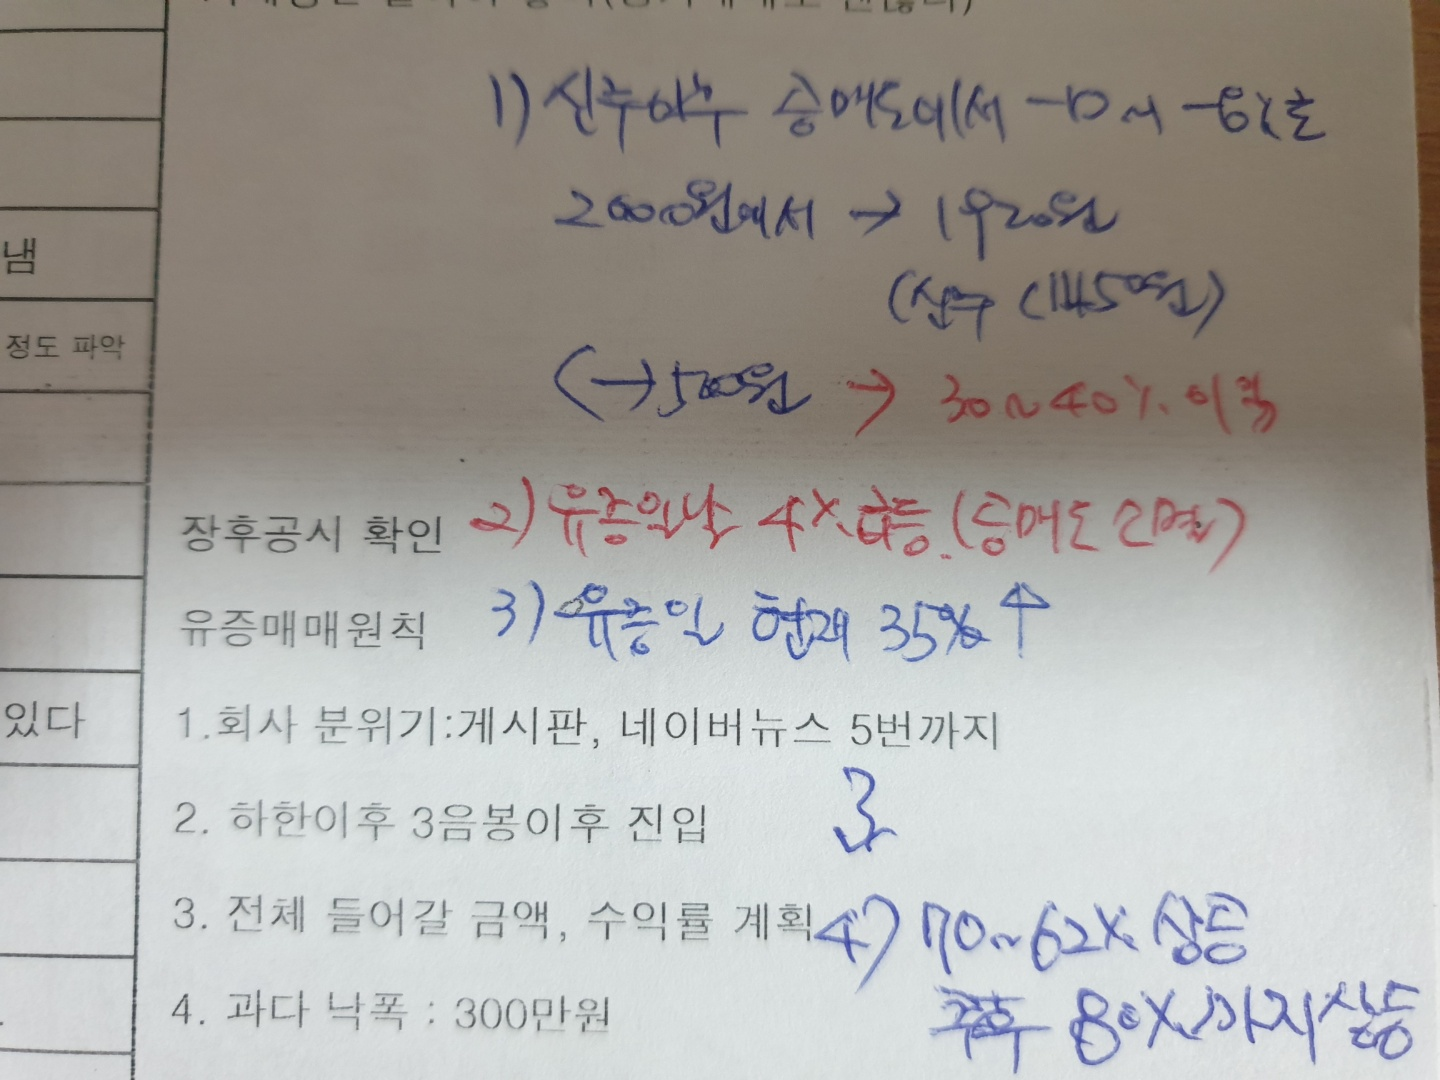 1) 신주이후 공매도에서 -10~ -6%로
2000원에서 → 1920원
(신주 (1450원)
(→500원 → 30~40% 이익
냄
정도 파악
장후공시 확인 2) 유증일날 4% 급등.(공매도
유증매매원칙 3) 유증일 현재 35% ↑
있다 1.회사 분위기:게시판, 네이버뉴스 5번까지
2. 하한이후 3음봉이후 진입 3
3. 전체 들어갈 금액, 수익률 계획 4) 70~62% 상승
4. 과다 낙폭 : 300만원 80%까지 상승